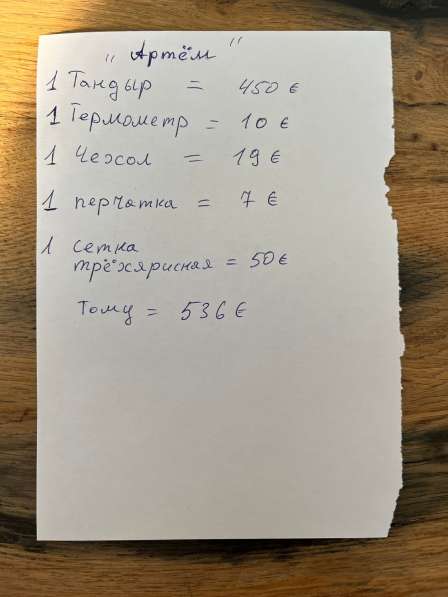 "Артём"
1 Тандыр = 450 €
1 Термометр = 10 €
1 Чехол = 19 €
1 перчатка = 7 €
1 сетка
трёхярисная = 50 €
Тому = 536 €